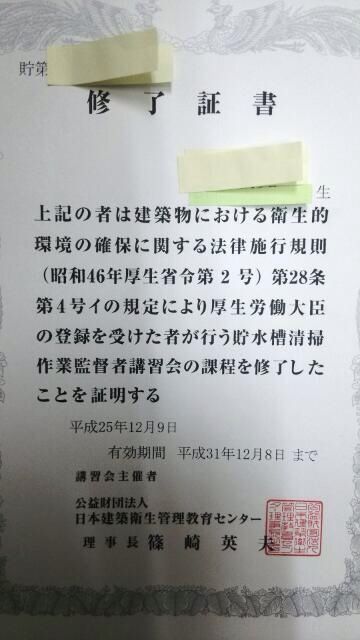 貯第
修了証書
生
上記の者は建築物における衛生的
環境の確保に関する法律施行規則
（昭和46年厚生省令第2号）第28条
第4号イの規定により厚生労働大臣
の登録を受けた者が行う貯水槽清掃
作業監督者講習会の課程を修了した
ことを証明する
平成25年12月9日
有効期間 平成31年12月8日 まで
講習会主催者
公益財団法人
日本建築衛生管理教育センター
理事長 篠崎英夫